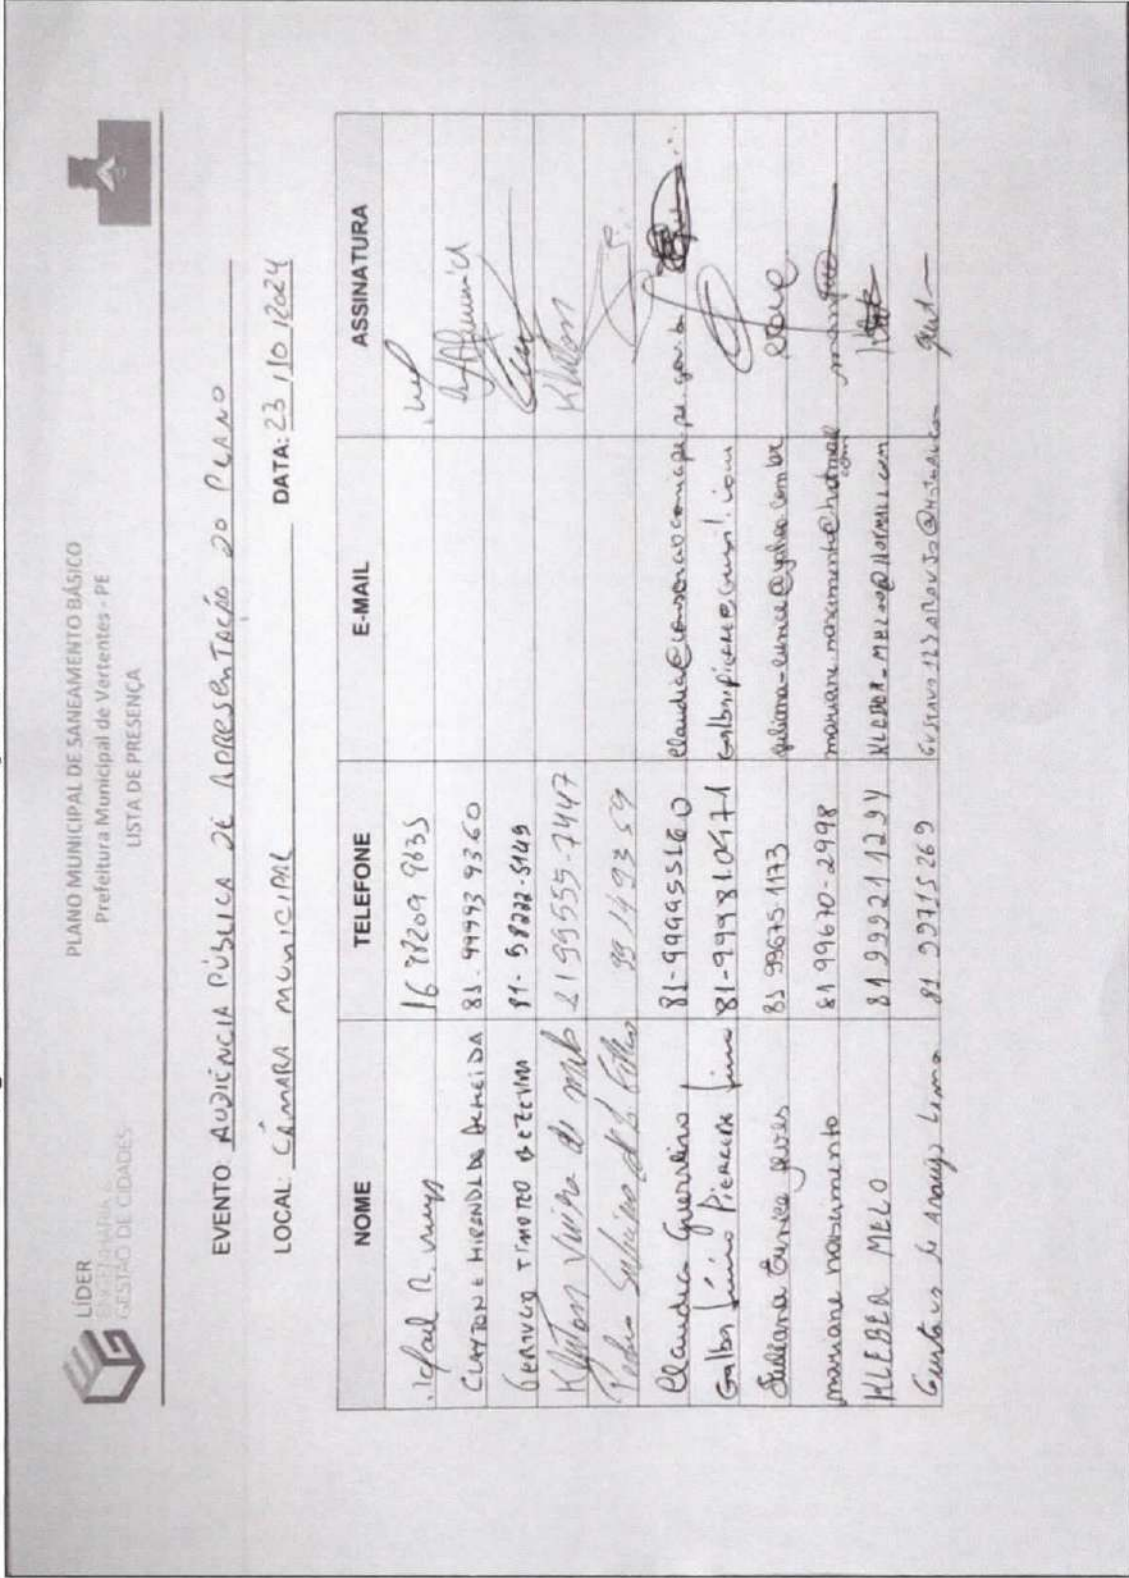 LÍDER
ENGENHARIA E
GESTÃO DE CIDADES
PLANO MUNICIPAL DE SANEAMENTO BÁSICO
Prefeitura Municipal de Vertentes - PE
LISTA DE PRESENÇA
EVENTO: AUDIÊNCIA PÚBLICA DE APRESENTAÇÃO DO PLANO
LOCAL: CÂMARA MUNICIPAL DATA: 23/10/2024
NOME TELEFONE E-MAIL ASSINATURA
R. 16 98209 9635
CLAYTON E MIRANDA DE ALMEIDA 81. 99993 9360
TIMOTEO BEZERRA 81- 98222-5149
Kleiton Vieira de melo 81 99555-7447 Kleiton
Pedro Filho 99149359
Claudia Guerreiro 81-999455160
Galba Pierre Lima 81-99981.0471
Juliana Eunice 81 99675-1173 juliana-eunice@yahoo.com.br
mariane nascimento 81 99670-2998 mariane.nascimento@hotmail.com
KLEBER MELO 81 999211294 KLEBER_MELO@HOTMAIL.COM
Gustavo de Araujo Lima 81 99715269 GUSTAVO123ARAUJO@HOTMAIL.COM